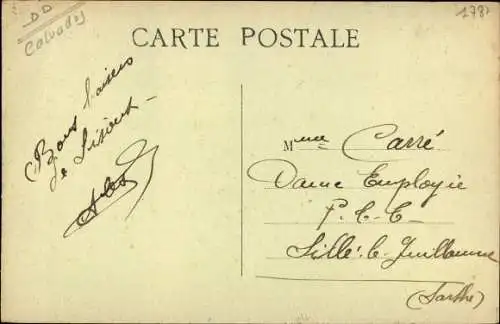 DD
Calvados
1787
CARTE POSTALE
Bons baisers
de Lisieux
Mme Carré
Dame Employée
P.T.T.
Sillé-le-Guillaume
(Sarthe)